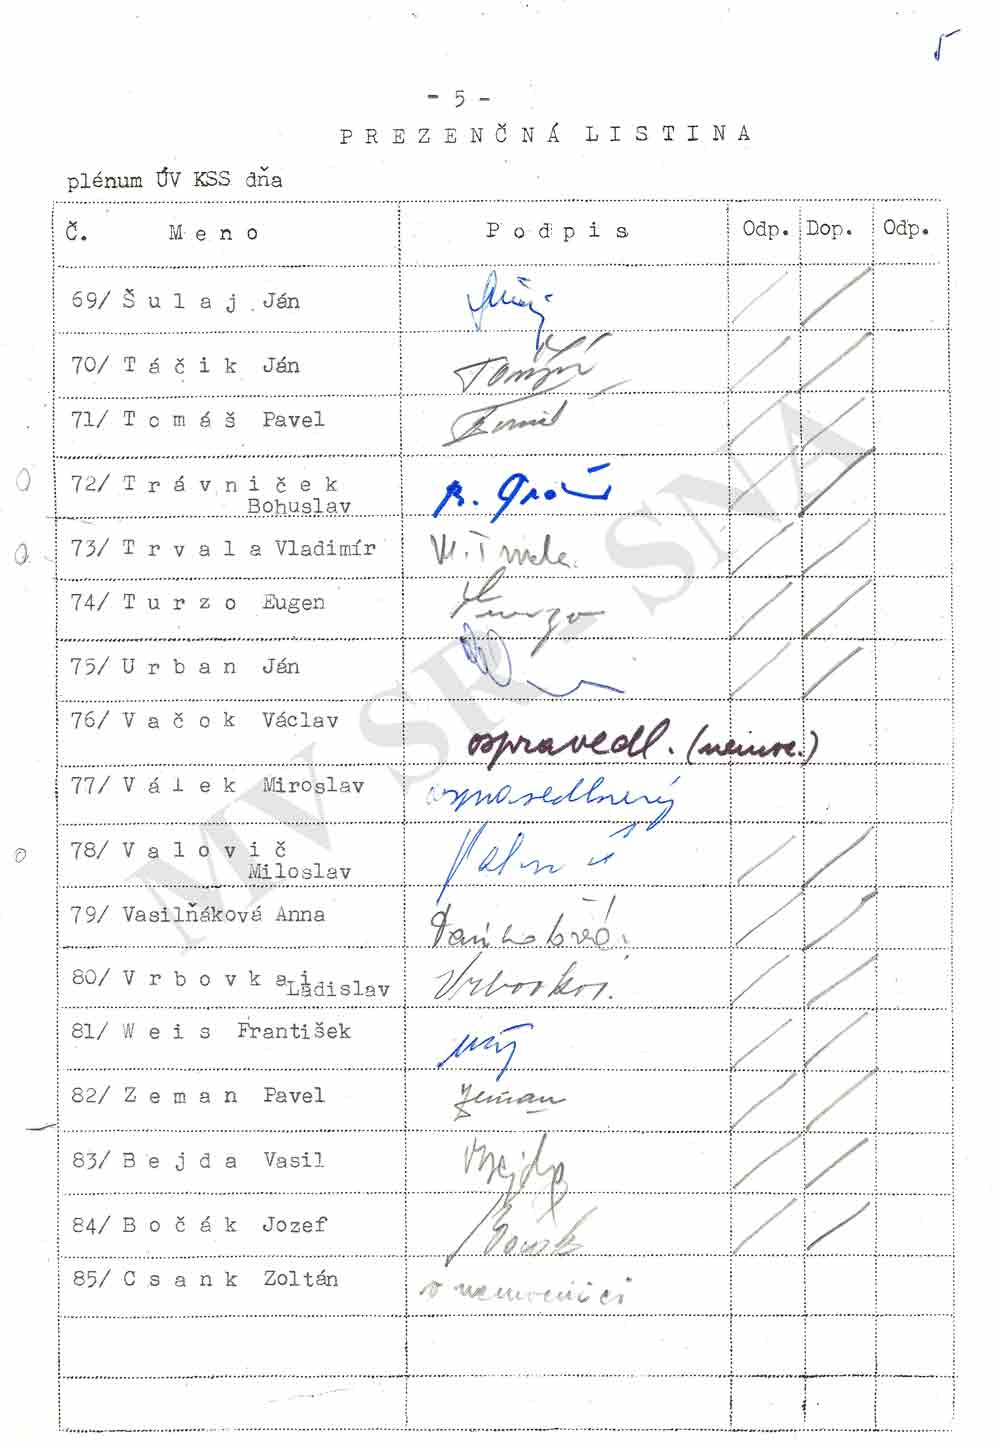 5
- 5 -
PREZENČNÁ LISTINA
plénum ÚV KSS dňa
Č. Meno Podpis Odp. Dop. Odp.
69/ Šulaj Ján
70/ Táčik Ján
71/ Tomáš Pavel
72/ Trávniček
Bohuslav
73/ Trvala Vladimír Vl. Trvala
74/ Turzo Eugen Turzo
75/ Urban Ján
76/ Vačok Václav ospravedl. (nemoc.)
77/ Válek Miroslav ospravedlnený
78/ Valovič
Miloslav
79/ Vasilňáková Anna
80/ Vrbovkai
Ladislav
81/ Weis František
82/ Zeman Pavel Zeman
83/ Bejda Vasil Bejda
84/ Bočák Jozef Bočák
85/ Csank Zoltán v nemocnici
MV SR - SNA